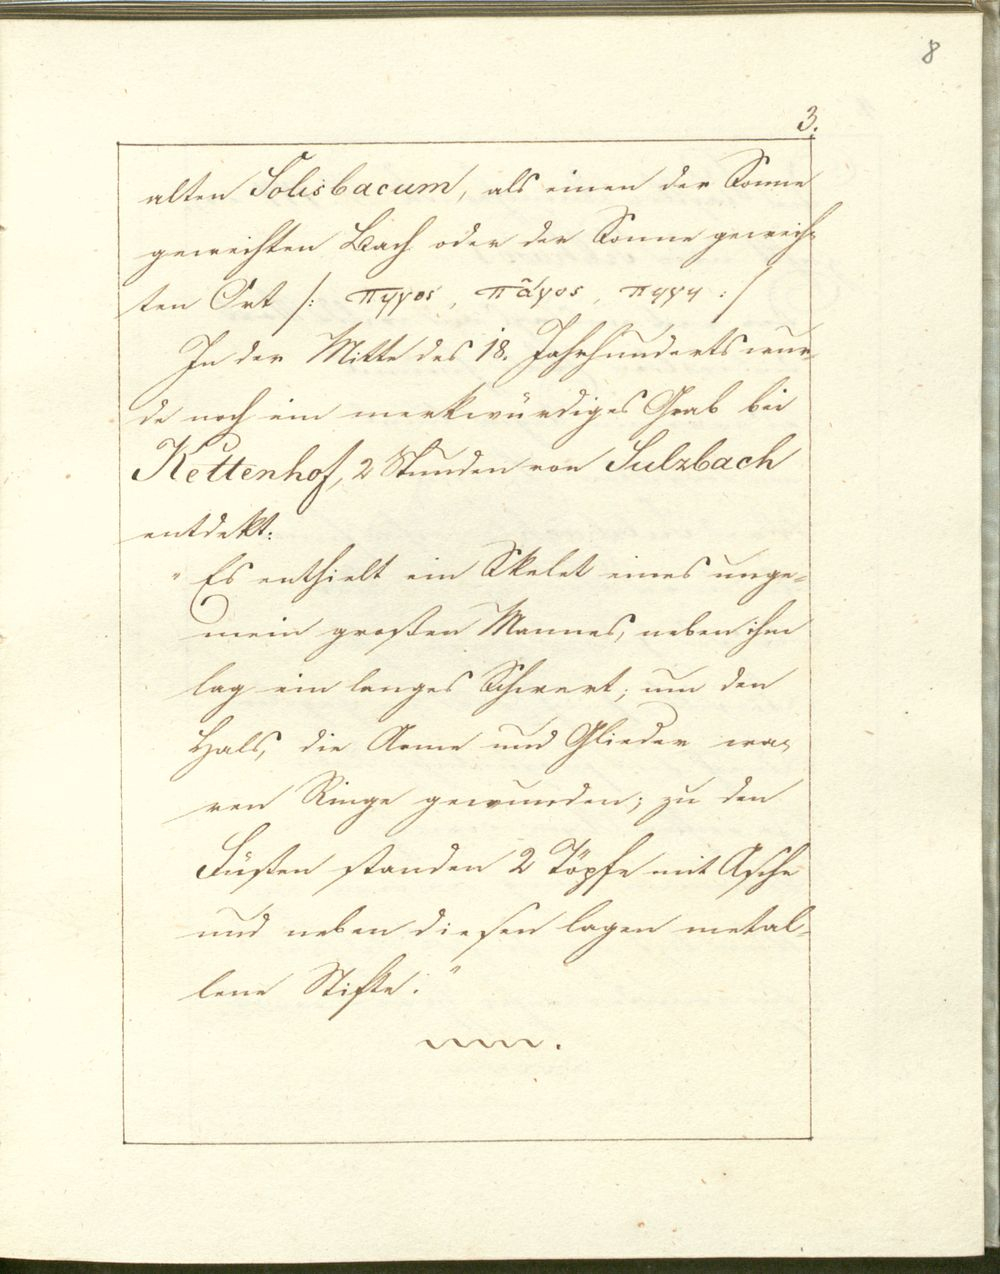 8
3.
alten Solisbacum, als einen der Sonne
geweihten Bach oder der Sonne geweih-
ten Ort /: πηγος, πᾶγος, πηγη :/
In der Mitte des 18. Jahrhunderts wur-
de noch ein merkwürdiges Grab bei
Kettenhof, 2 Stunden von Sulzbach
entdekt:
"Es enthielt ein Skelet eines unge-
mein großen Mannes, neben ihm
lag ein langes Schwert; um den
Hals, die Arme und Glieder wa-
ren Ringe gewunden; zu den
Füßen standen 2 Töpfe mit Asche
und neben diesen lagen metal-
lene Stifte."